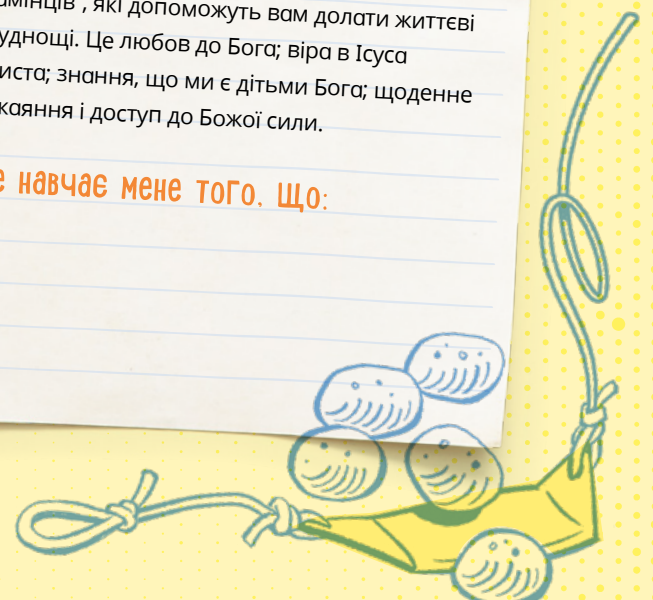 амінців", які допоможуть вам долати життєві
уднощі. Це любов до Бога; віра в Ісуса
иста; знання, що ми є дітьми Бога; щоденне
каяння і доступ до Божої сили.
е навчає мене того, що: